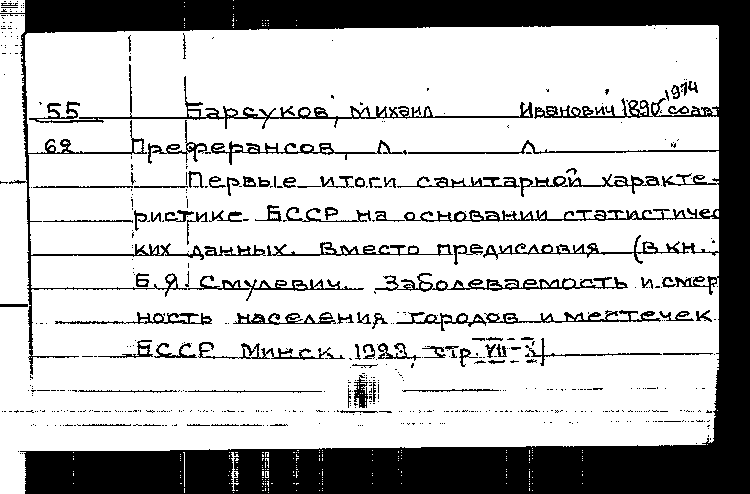 55 Барсуков, Михаил Иванович 1890-1974 соавт
62 Преферансов, Л. Л. "
Первые итоги санитарной характе-
ристике БССР на основании статистичес
ких данных. Вместо предисловия (В кн.:
Б.Я. Смулевич. Заболеваемость и смер
ность населения городов и местечек
БССР Минск. 1928, стр. VII-X).